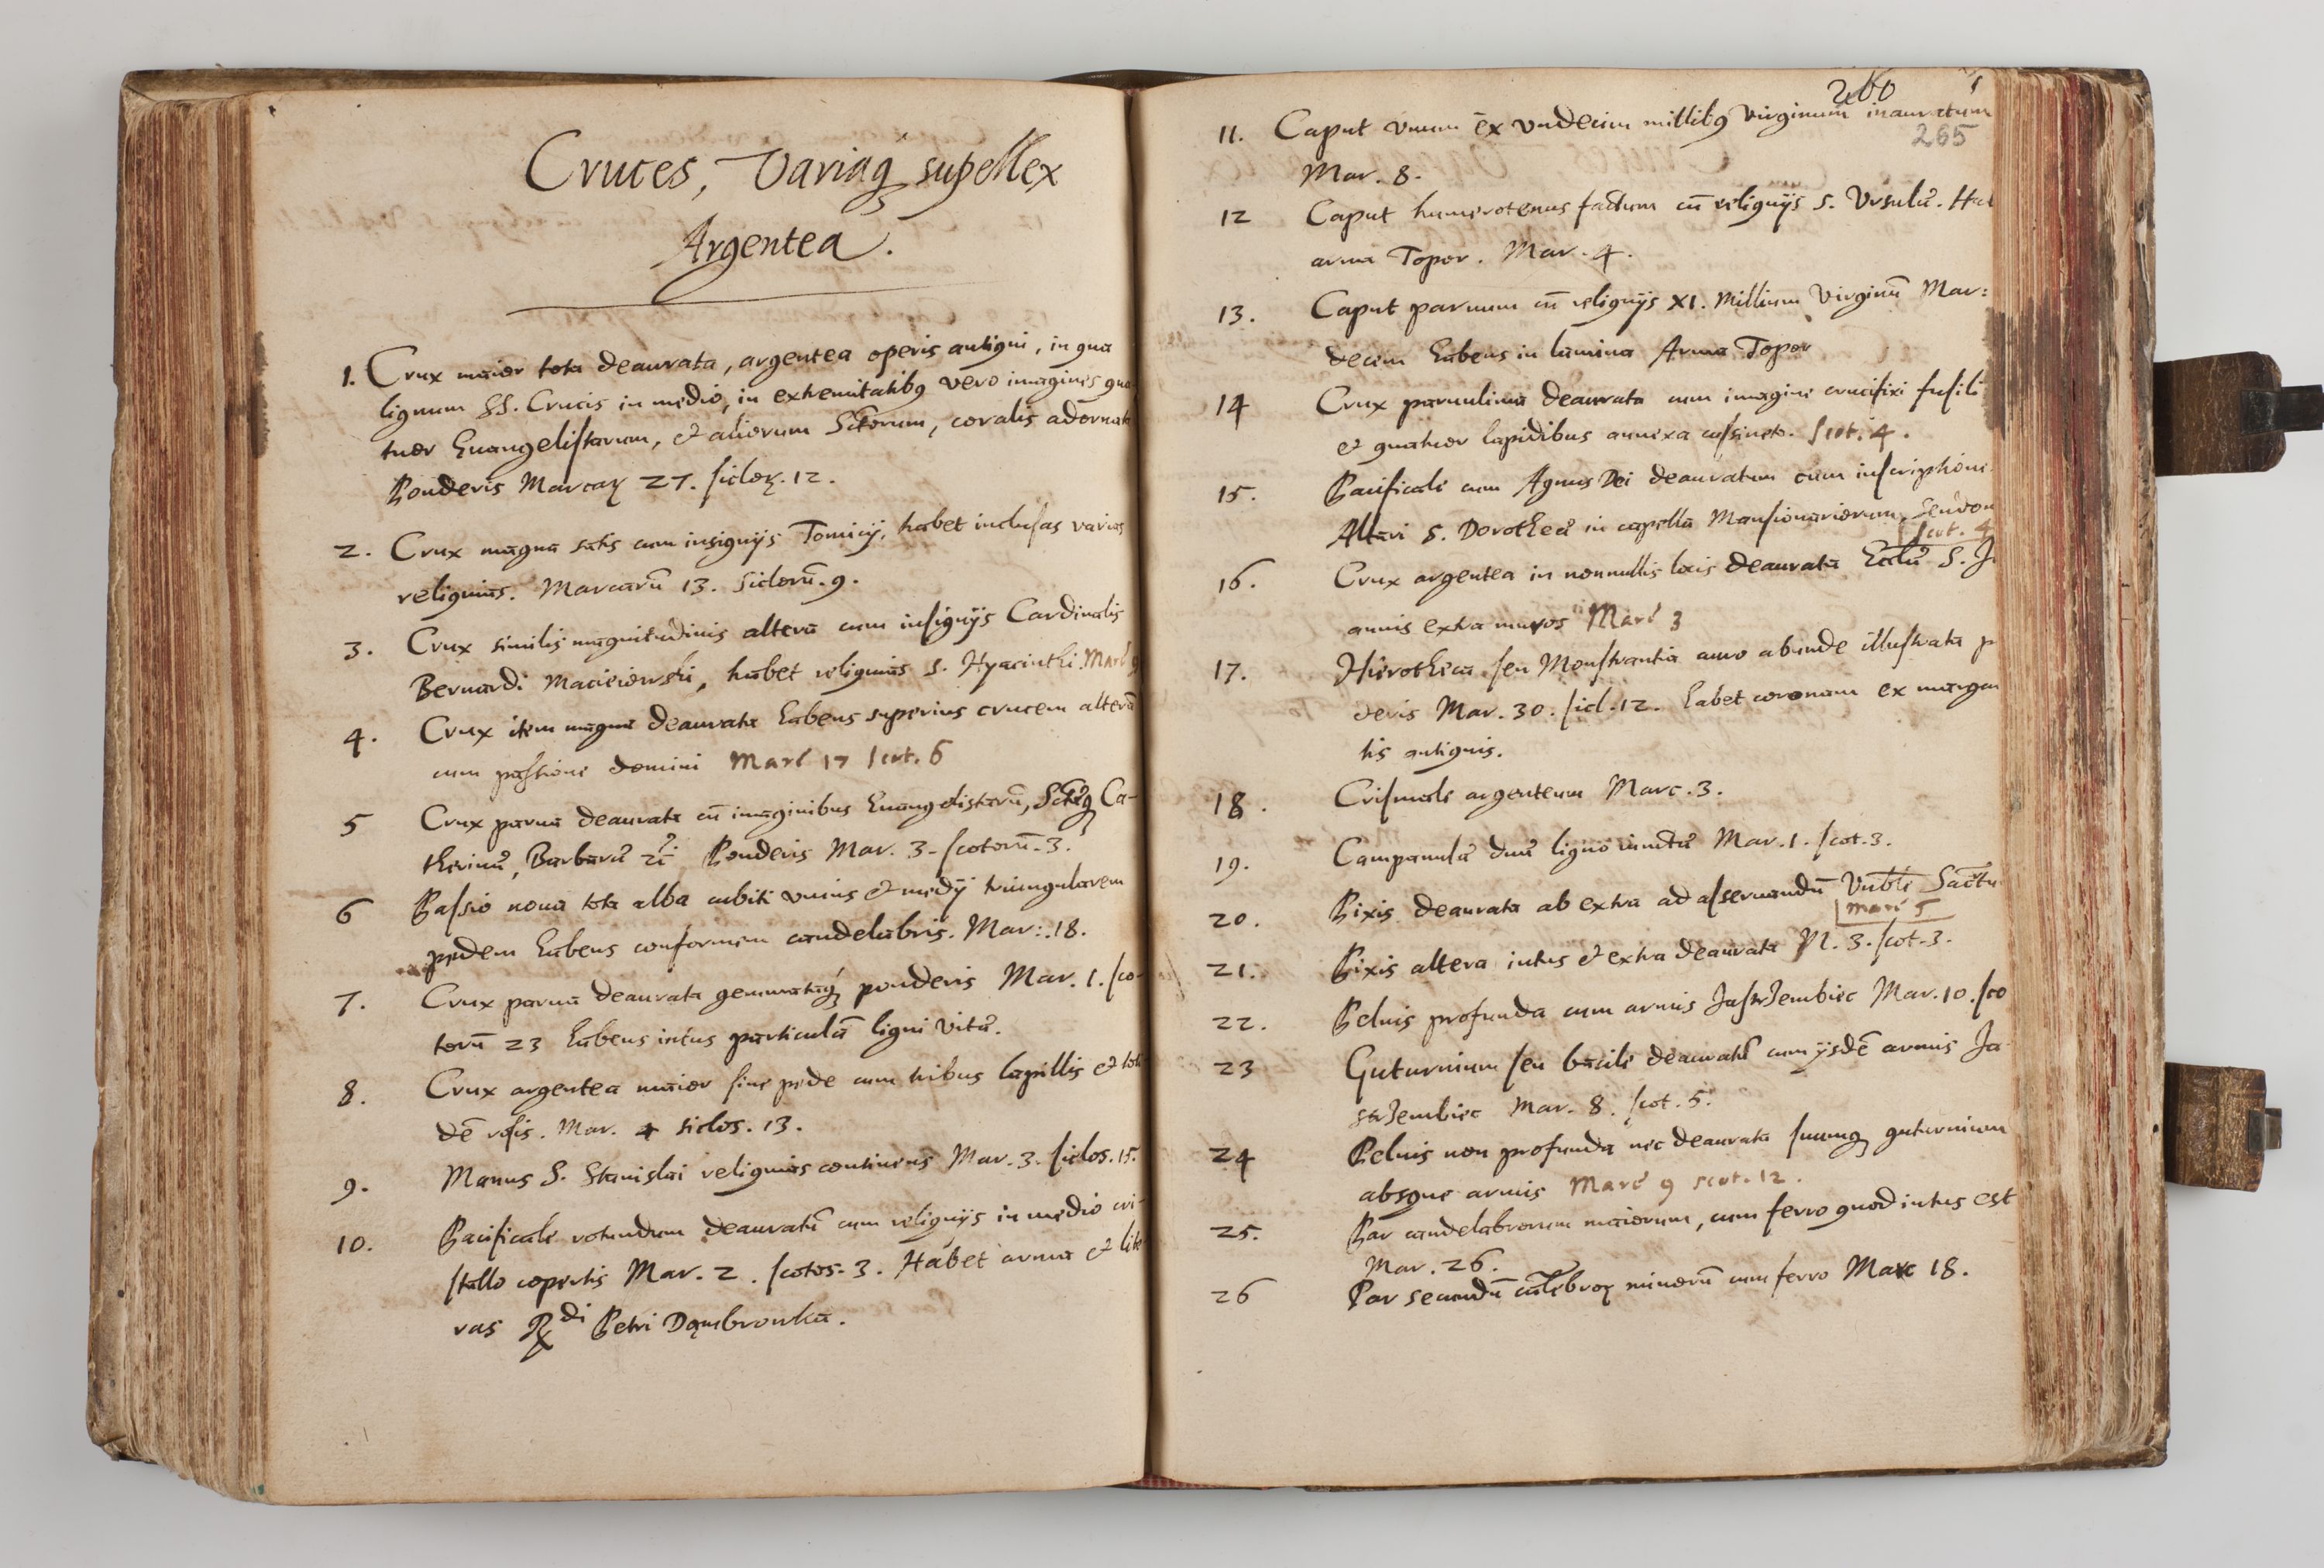 Cruces, Variaq3 supellex
Argentea.
1. Crux maior tota deaurata, argentea operis antiqui, in qua
lignum SS. Crucis in medio, in extremitatibq vero imagines qua
tuor Euangelistarum, et aliorum Sctorum, coralis adornata
Ponderis Marcaꝝ 27. sicloꝝ. 12.
2. Crux magna satis cum insignijs Tomicij, habet inclusas varias
reliquias. Marcarū 13. Siclorū. 9.
3. Crux similis magnitudinis altera cum insignijs Cardinalis
Bernardi Macieiowski, habet reliquias S. Hyacinthi. Marć 9
4. Crux item magna deaurata habens superius crucem alterā
cum passione domini Marć 17 scot. 6
5 Crux parua deaurata cū imaginibus Euangelistarū, Ca-
therinæ, Barbaræ Ponderis Mar. 3. scotorū. 3.
6 Passio noua tota alba cubiti vnius et medij triangularem
pedem habens conformem candelabris. Mar:. 18.
7. Crux parua deaurata gemmataq3 ponderis Mar. 1. sco-
torū 23 habens intus particulā ligni vitæ.
8. Crux argentea maior sine pede cum tribus lapillis et toti
dē rosis. Mar. 4 siclos. 13.
9. Manus S. Stanislai reliquias continens Mar. 3. siclos. 15.
10. Pacificale rotundum deauratū cum reliquijs in medio cri-
stallo copertis Mar. 2. scotos. 3. Habet arma et lite
ras Rdi Petri Dąmbrowka.
260
265
11. Caput vnum ex vndecim millibq virginum inauratum
Mar. 8.
12 Caput humerotenus factum cū reliquijs S. Vrsulæ. Hab
arma Topor. Mar. 4.
13. Caput paruum cū reliquijs XI. Millium Virginū Mar:
decem habens in lamina Arma Topor
14 Crux paruulina deaurata cum imagine crucifixi fusili
et quatuor lapidibus annexa Scot. 4.
15. Pacificale cum Agnus Dei deauratum cum inscriptione
Altari S. Dorotheæ in capella Mansionariorum,
scot. 4
16. Crux argentea in nonnullis locis deaurata Eccliæ S. Jo
annis extra muros Marć 3
17. Hierotheca seu Monstrantia auro abunde illustrata po
deris Mar. 30. sicl. 12. habet coronam ex margari
tis antiquis.
18. Crismale argenteum Marc. 3.
19. Campanulæ duæ ligno iunctæ Mar. 1. scot. 3.
20. Pixis deaurata ab extra ad asseruandū
Marć 5
21. Pixis altera intus et extra deaurata M. 3. scot. 3.
22. Peluis profunda cum armis Jastrzembiec Mar. 10. sco
23 Guturnium seu bacile deauratū cum ijsdē armis Ja
strzembiec Mar. 8. scot. 5.
24 Peluis non profunda nec deaurata suumq3 guturnium
absque armis Marć 9 scot. 12.
25. Par candelabrorum maiorum, cum ferro quod intus est
Mar. 26.
26 Par secundū minorū cum ferro Marc 18.